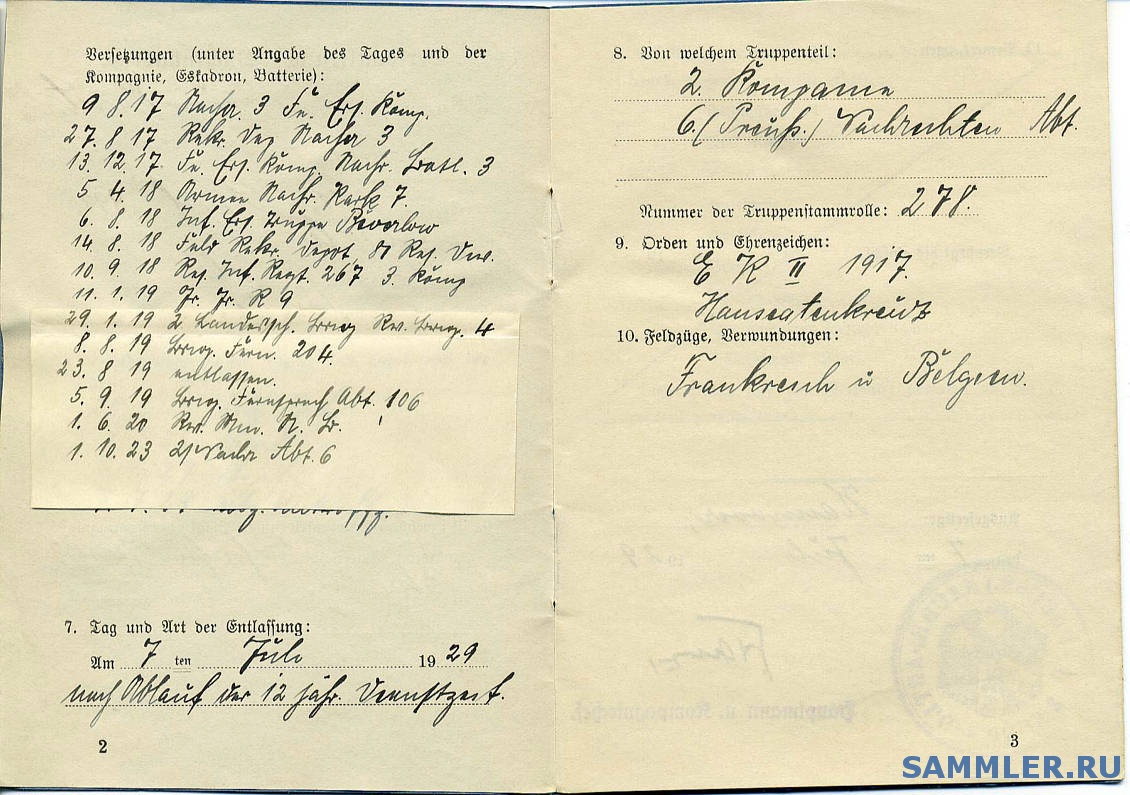 Versetzungen (unter Angabe des Tages und der
Kompagnie, Eskadron, Batterie):
9 8. 17 Nachr. 3 Fu. Ers. Komp.
27. 8 17 Rekr. Dep Nachr 3
13. 12. 17. Fu. Ers. Komp. Nachr. Batl. 3
5 4. 18 Armee Nachr. Park 7.
6. 8. 18 Inf. Ers. Truppe Beverloo
14. 8. 18 Feld Rekr. Depot, Res. Div.
10. 9. 18 Res. Inf. Regt. 267 3. Komp
11. 1. 19 R 9
29. 1. 19 2. Landessch. Brig 4
8. 8. 19 Brig. Fern. 204.
23. 8 19 entlassen.
5. 9. 19 Brig. Fernsprech Abt. 106
1. 6. 20
1. 10. 23 2/ Nachr Abt. 6
7. Tag und Art der Entlassung:
Am 7 ten Juli 1929
nach Ablauf der 12 jähr. Dienstzeit.
2
8. Von welchem Truppenteil:
2. Kompanie
6. (Preuß.) Nachrichten Abt.
Nummer der Truppenstammrolle: 278.
9. Orden und Ehrenzeichen:
E K II 1917.
Hanseatenkreuz
10. Feldzüge, Verwundungen:
Frankreich u Belgien.
3
SAMMLER.RU